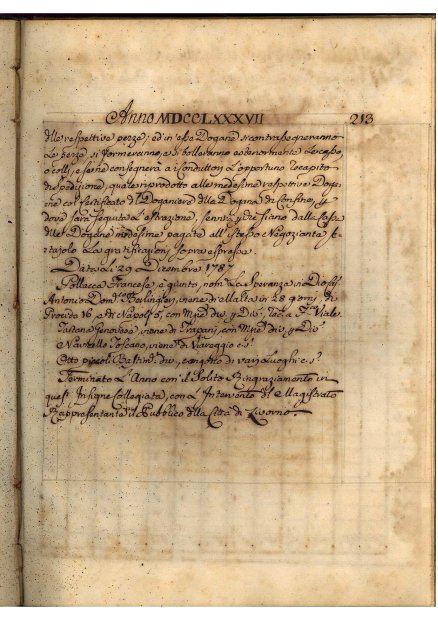 Anno MDCCLXXXVII 213
dlle respettive pezze; ed in esse Dogane si contrasegneranno
Le pezze, si formeranno, e si bolleranno esteriormente Le casse,
o colli, e se ne consegnerà a i Conduttori L'opportuno recapito
di spedizione, quale riprodotto alle medesime respettive Doga-
ne col certificato dl Doganiere dlla Dogana di Confine, p
dove sarà seguita L'estrazione, servirà p che siano dalla Cassa
dlle Dogane medesime pagate all' stesso Negoziante
La gratificazioni sopra espresse.
Data Li 29 Dicembre 178
Pollacca Francese, è giunto, nom.ta La Speranza,
Antonio Dom.co viene di Malta in 28 giorni, di
Provido 16, e di Napoli 5, con Mer. div. p Div.
Tartana Genovese, viene di Trapani, con Mer. div. p Div.
Navicello Toscano, viene di Viareggio e s.
Otto piccoli Bastim. div. con gotto di varj Luoghi e s.
Terminato L'Anno con il Solito Ringraziamento in
quest' Insigne Collegiata, con L'Intervento dl Magistrato
Rappresentante il Pubblico dlla Città di Livorno.